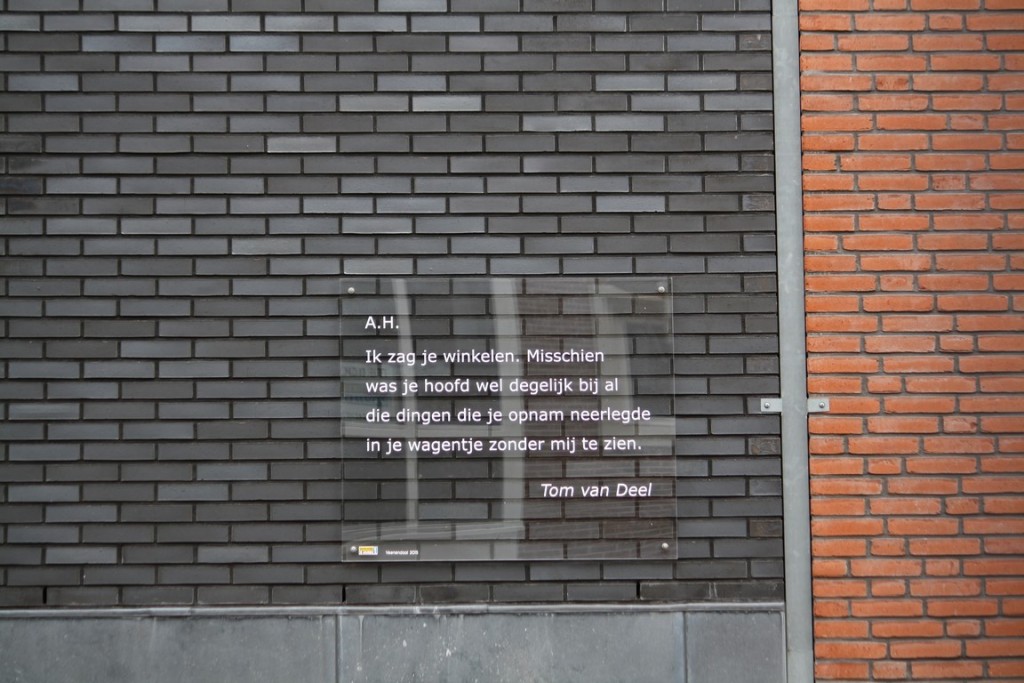 A.H.
Ik zag je winkelen. Misschien
was je hoofd wel degelijk bij al
die dingen die je opnam neerlegde
in je wagentje zonder mij te zien.
Tom van Deel